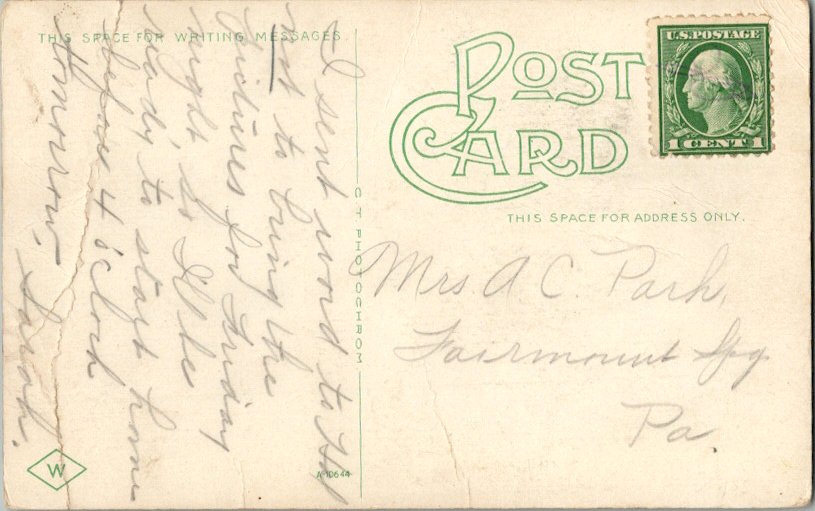 THIS SPACE FOR WRITING MESSAGES
POST
CARD
U.S. POSTAGE
1 CENT 1
THIS SPACE FOR ADDRESS ONLY.
I sent word to
not to bring the
Pictures for Friday
night so I'll be
ready to start home
before 4 o'clock
tomorrow. Sarah.
C T PHOTOCHROM
Mrs. A C. Park,
Fairmount Spg
Pa.
W
A-10644